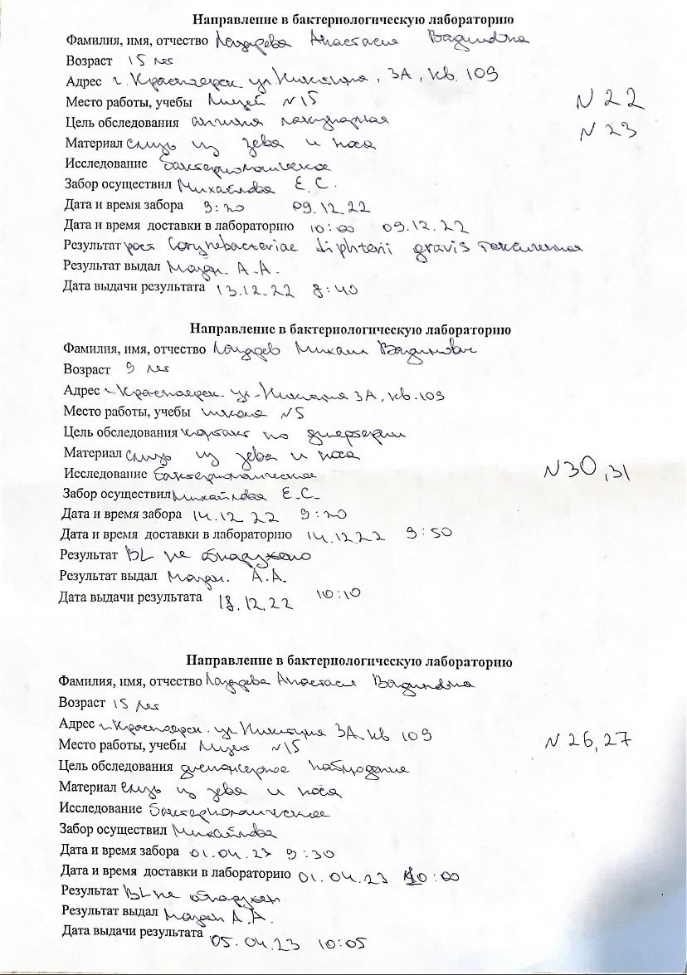 Направление в бактериологическую лабораторию
Фамилия, имя, отчество Лазарева Анастасия Вадимовна
Возраст 15 лет
Адрес г. Красноярск ул. Никитина, 3А, кв. 109
Место работы, учебы Лицей №15
N 22
Цель обследования ангина лакунарная
N 23
Материал слизь из зева и носа
Исследование бактериологическое
Забор осуществил Михайлова Е.С.
Дата и время забора 9:20 09.12.22
Дата и время доставки в лабораторию 10:00 09.12.22
Результат рост Corynebacteriae diphterii gravis токсигенная
Результат выдал А.А.
Дата выдачи результата 13.12.22 8:40
Направление в бактериологическую лабораторию
Фамилия, имя, отчество Лазарев Михаил Вадимович
Возраст 9 лет
Адрес г. Красноярск. ул. Никитина 3А, кв. 109
Место работы, учебы школа №5
Цель обследования контакт по дифтерии
Материал слизь из зева и носа
Исследование бактериологическое
N30,31
Забор осуществил Михайлова Е.С.
Дата и время забора 14.12 22 9:20
Дата и время доставки в лабораторию 14.12 22 9:50
Результат BL не обнаружено
Результат выдал А.А.
Дата выдачи результата 18.12.22 10:10
Направление в бактериологическую лабораторию
Фамилия, имя, отчество Лазарева Анастасия Вадимовна
Возраст 15 лет
Адрес г. Красноярск. ул Никитина 3А, кв 109
Место работы, учебы Лицей №15
N 26,27
Цель обследования диспансерное наблюдение
Материал слизь из зева и носа
Исследование бактериологическое
Забор осуществил Михайлова
Дата и время забора 01.04.23 9:30
Дата и время доставки в лабораторию 01.04.23 10:00
Результат BL не обнаружен
Результат выдал А.А.
Дата выдачи результата 05.04.23 10:05